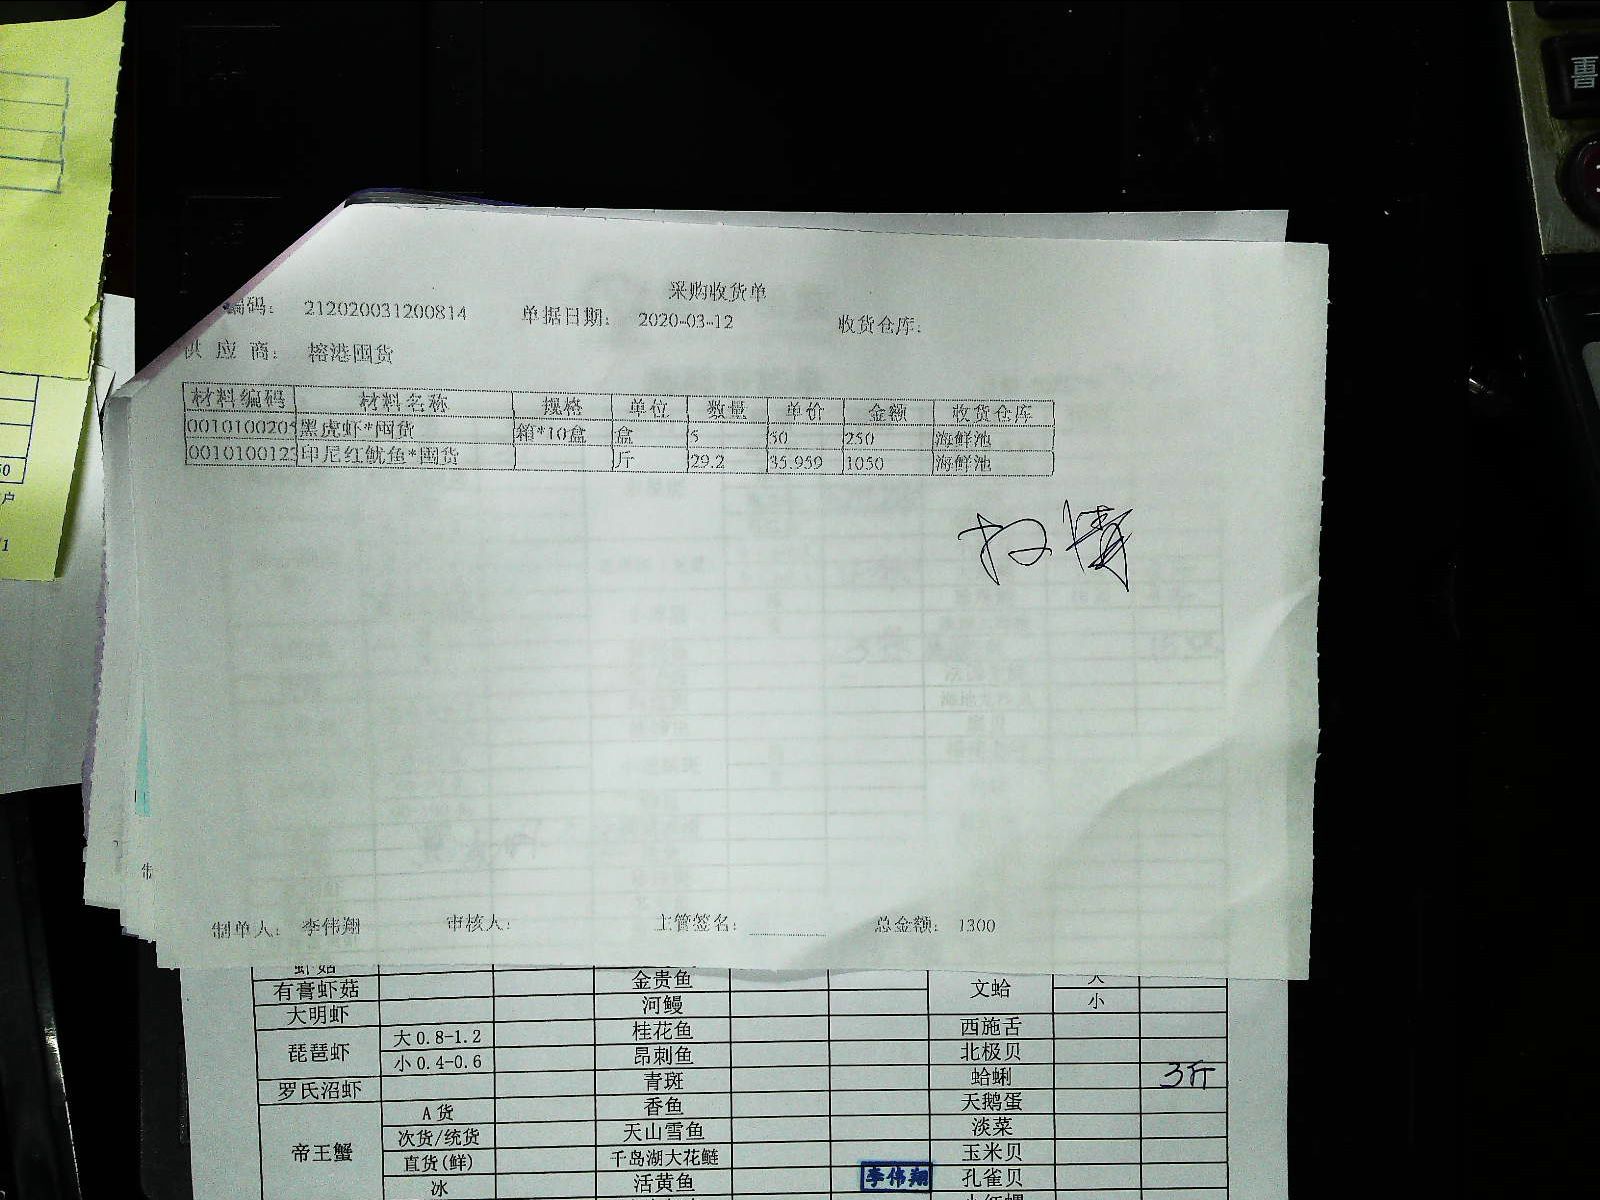 采购收货单
编码： 212020031200814 单据日期： 2020-03-12 收货仓库：
供应商： 榕港囤货
材料编码 材料名称 规格 单位 数量 单价 金额 收货仓库
0010100205 黑虎虾*囤货 箱*10盒 盒 5 50 250 海鲜池
0010100123 印尼红鱿鱼*囤货 斤 29.2 35.959 1050 海鲜池
制单人： 李伟翔 审核人： 主管签名： 总金额： 1300
虾菇
有膏虾菇 金贵鱼 文蛤 大
大明虾 河鳗 小
琵琶虾 大0.8-1.2 桂花鱼 西施舌
小0.4-0.6 昂刺鱼 北极贝
罗氏沼虾 青斑 蛤蜊 3斤
帝王蟹 A货 香鱼 天鹅蛋
次货/统货 天山雪鱼 淡菜
直货(鲜) 千岛湖大花鲢 玉米贝
冰 活黄鱼 李伟翔 孔雀贝